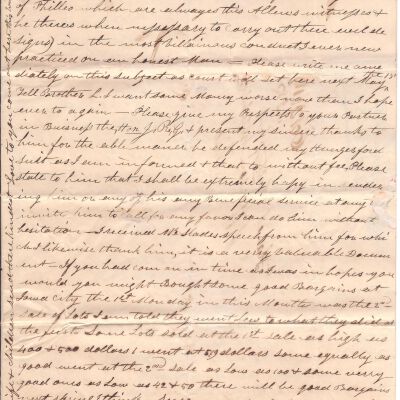 of Philleo which are always this Allens witnesses &
he theirs when nessessary to carry out there evil de
signs) in the most villainous conduct I ever new
practiced on an honest Man — Please write me ame
diately on this subject as court will set here next May 1st
Tell Brother L I want some Money worse now than I hope
ever to again — Please give my Respects to your Partner
in Buisness the Hon. J. & present my sincere thanks to
him for the able manner he defended my Hungerford
suit as I am informed & that to without fee, Please
state to him that I shall be extremely happy in render
ing him or any of his any Beneficial service at any
invite him to call for any favor I can do him without
hesitation — I received Mr Slades speech from him for whi
ch I likewise thank him, it is a very valuable Docum
ent — If you had come on in time as I was in hopes you
would you might Bought some good Bargains at
Iowa City the 1st Monday in this Month was the 2nd
sale of Lots I am told they went Less to what they did at
the first Some Lots sold at the 1st sale as high as
400 & 500 dollars 1 went at 519 dollars some equally as
good went at the 2nd sale as low as 100 & some verry
good ones as Low as 42 & 50 there will be good Bargains
next spring I think